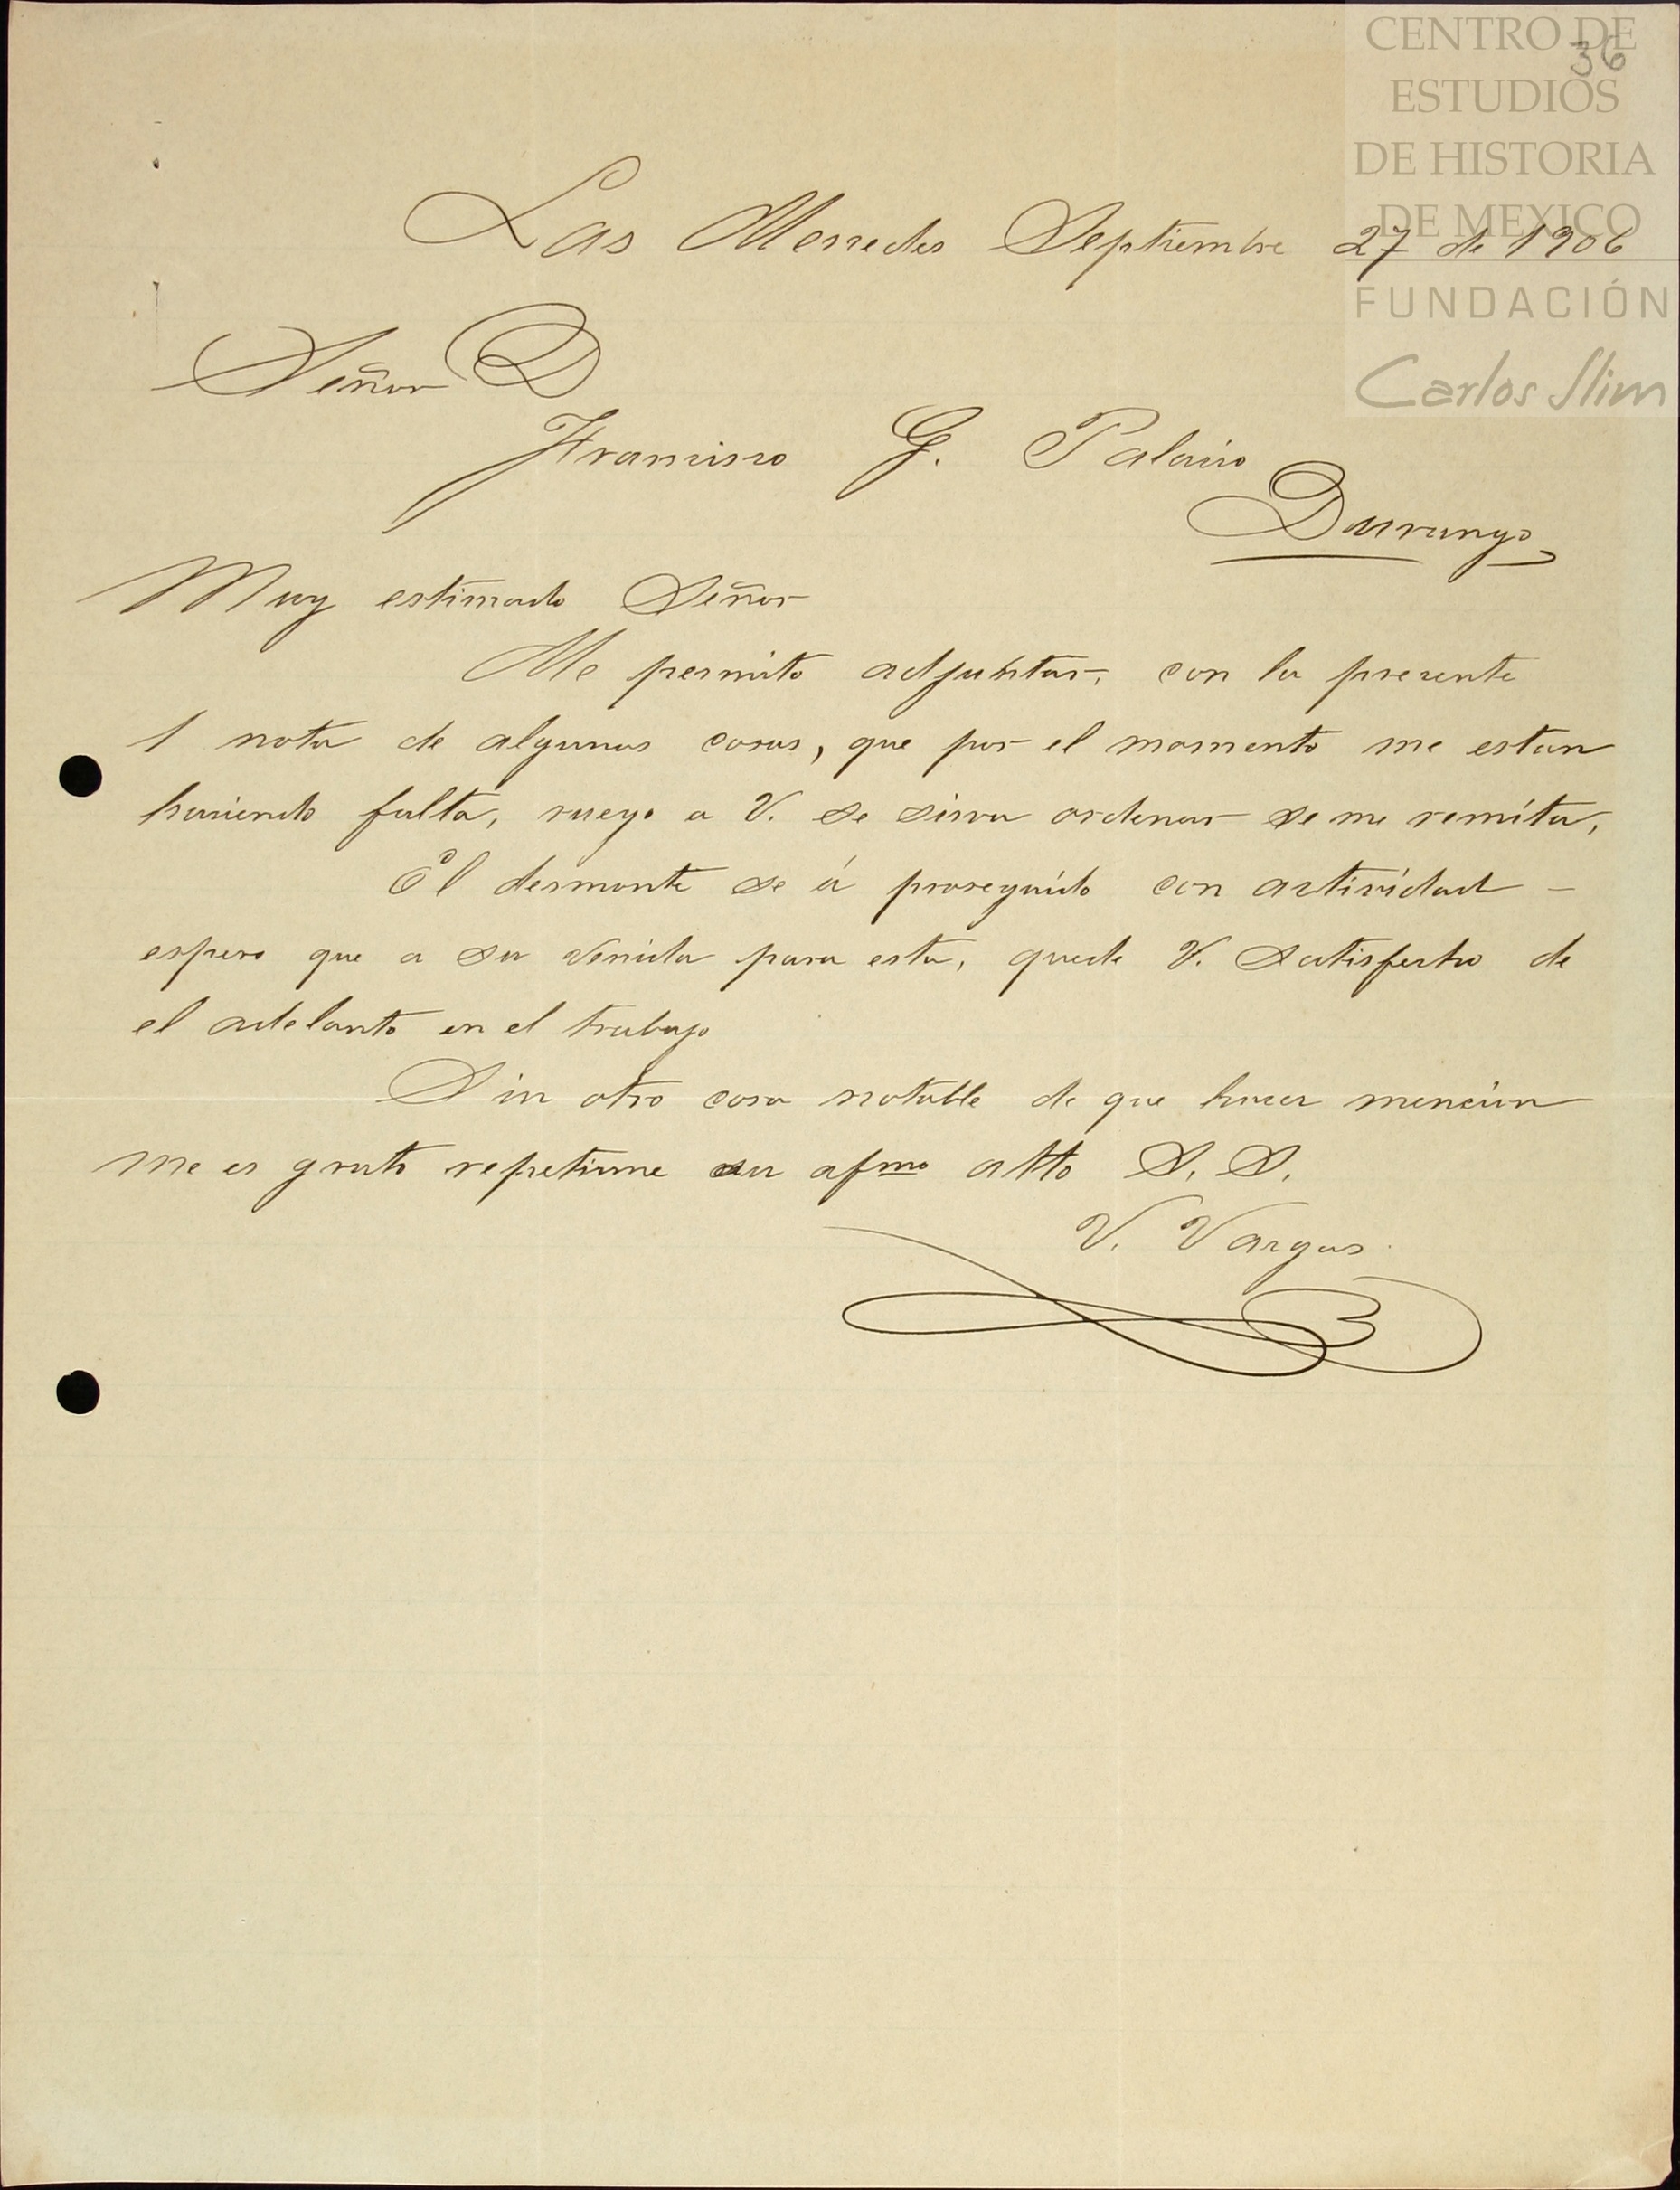 CENTRO DE
36
ESTUDIOS
DE HISTORIA
DE MEXICO
FUNDACIÓN
Carlos Slim
Las Mercedes Septiembre 27 de 1906
Señor D
Francisco G. Palacio
Durango
Muy estimado Señor
Me permito adjuntar, con la presente
1 nota de algunas cosas, que por el momento me estan
haciendo falta, ruego a V. se sirva ordenar se me remita,
El desmonte se á proseguido con actividad –
espero que a su venida para esta, quede V. satisfecho de
el adelanto en el trabajo
Sin otro cosa notable de que hacer mencion
me es grato repetirme su afmo atto S. S.
V. Vargas.